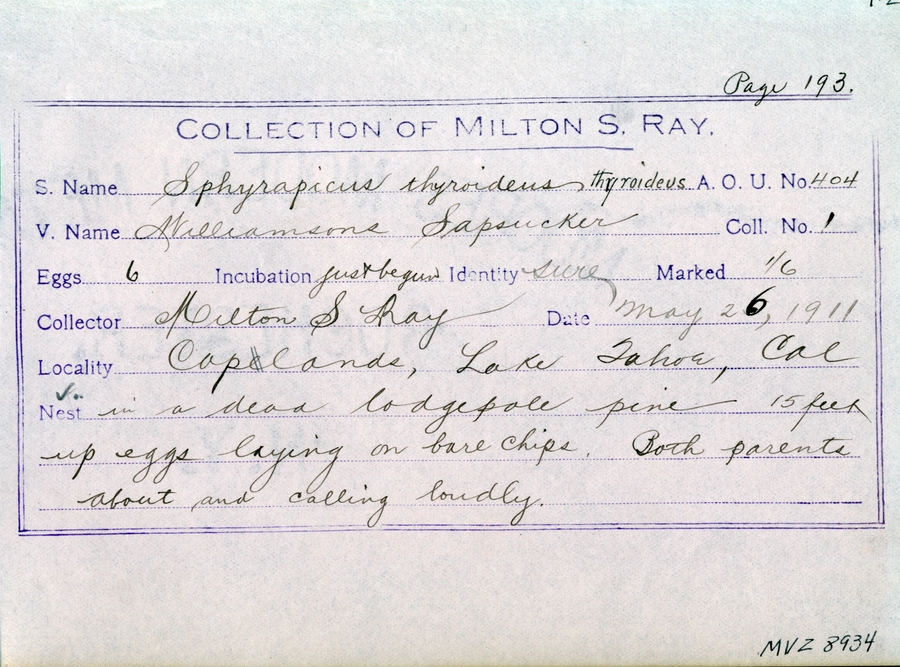 Page 193.
COLLECTION OF MILTON S. RAY.
S. Name Sphyrapicus thyroideus thyroideus A. O. U. No. 404
V. Name Williamsons Sapsucker Coll. No. 1
Eggs 6 Incubation just begun Identity sure Marked 1/6
Collector Milton S Ray Date May 26, 1911
Locality Copelands, Lake Tahoe, Cal
Nest in a dead lodgepole pine 15 feet
up eggs laying on bare chips. Both parents
about and calling loudly.
MVZ 8934